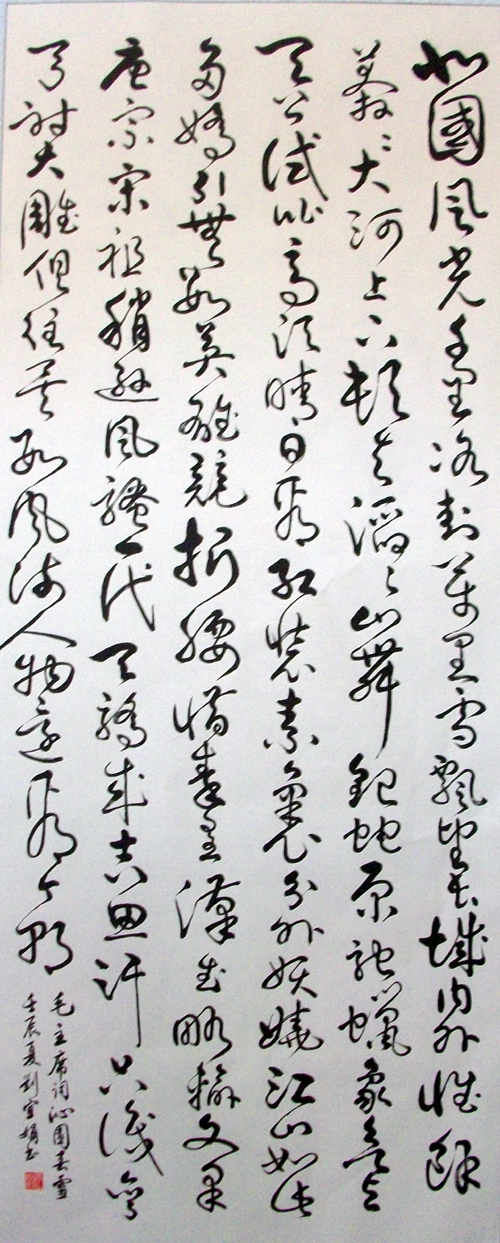 北國風光千里冰封萬里雪飄望長城內外惟餘
莽〻大河上下頓失滔〻山舞銀蛇原馳蠟象欲與
天公試比高須晴日看紅裝素裹分外妖嬈江山如此
多嬌引無數英雄競折腰惜秦皇漢武略輸文采
唐宗宋祖稍遜風騷一代天驕成吉思汗只識彎
弓射大雕俱往矣數風流人物還看今朝
毛主席词沁园春雪
壬辰夏刘娟书